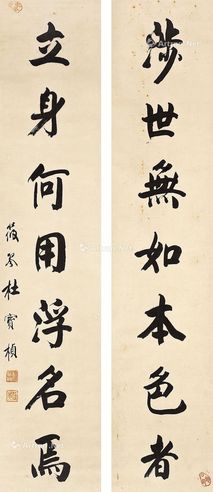 涉世無如本色者
立身何用浮名焉
筱岑杜寶楨